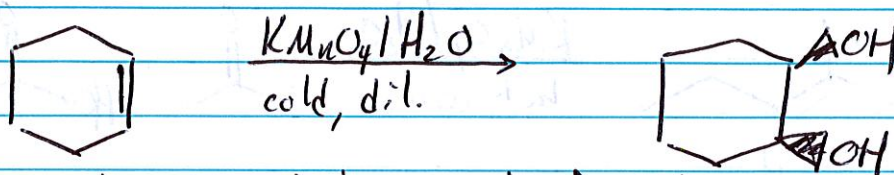 KMnO4/H2O
cold, dil.
OH
OH